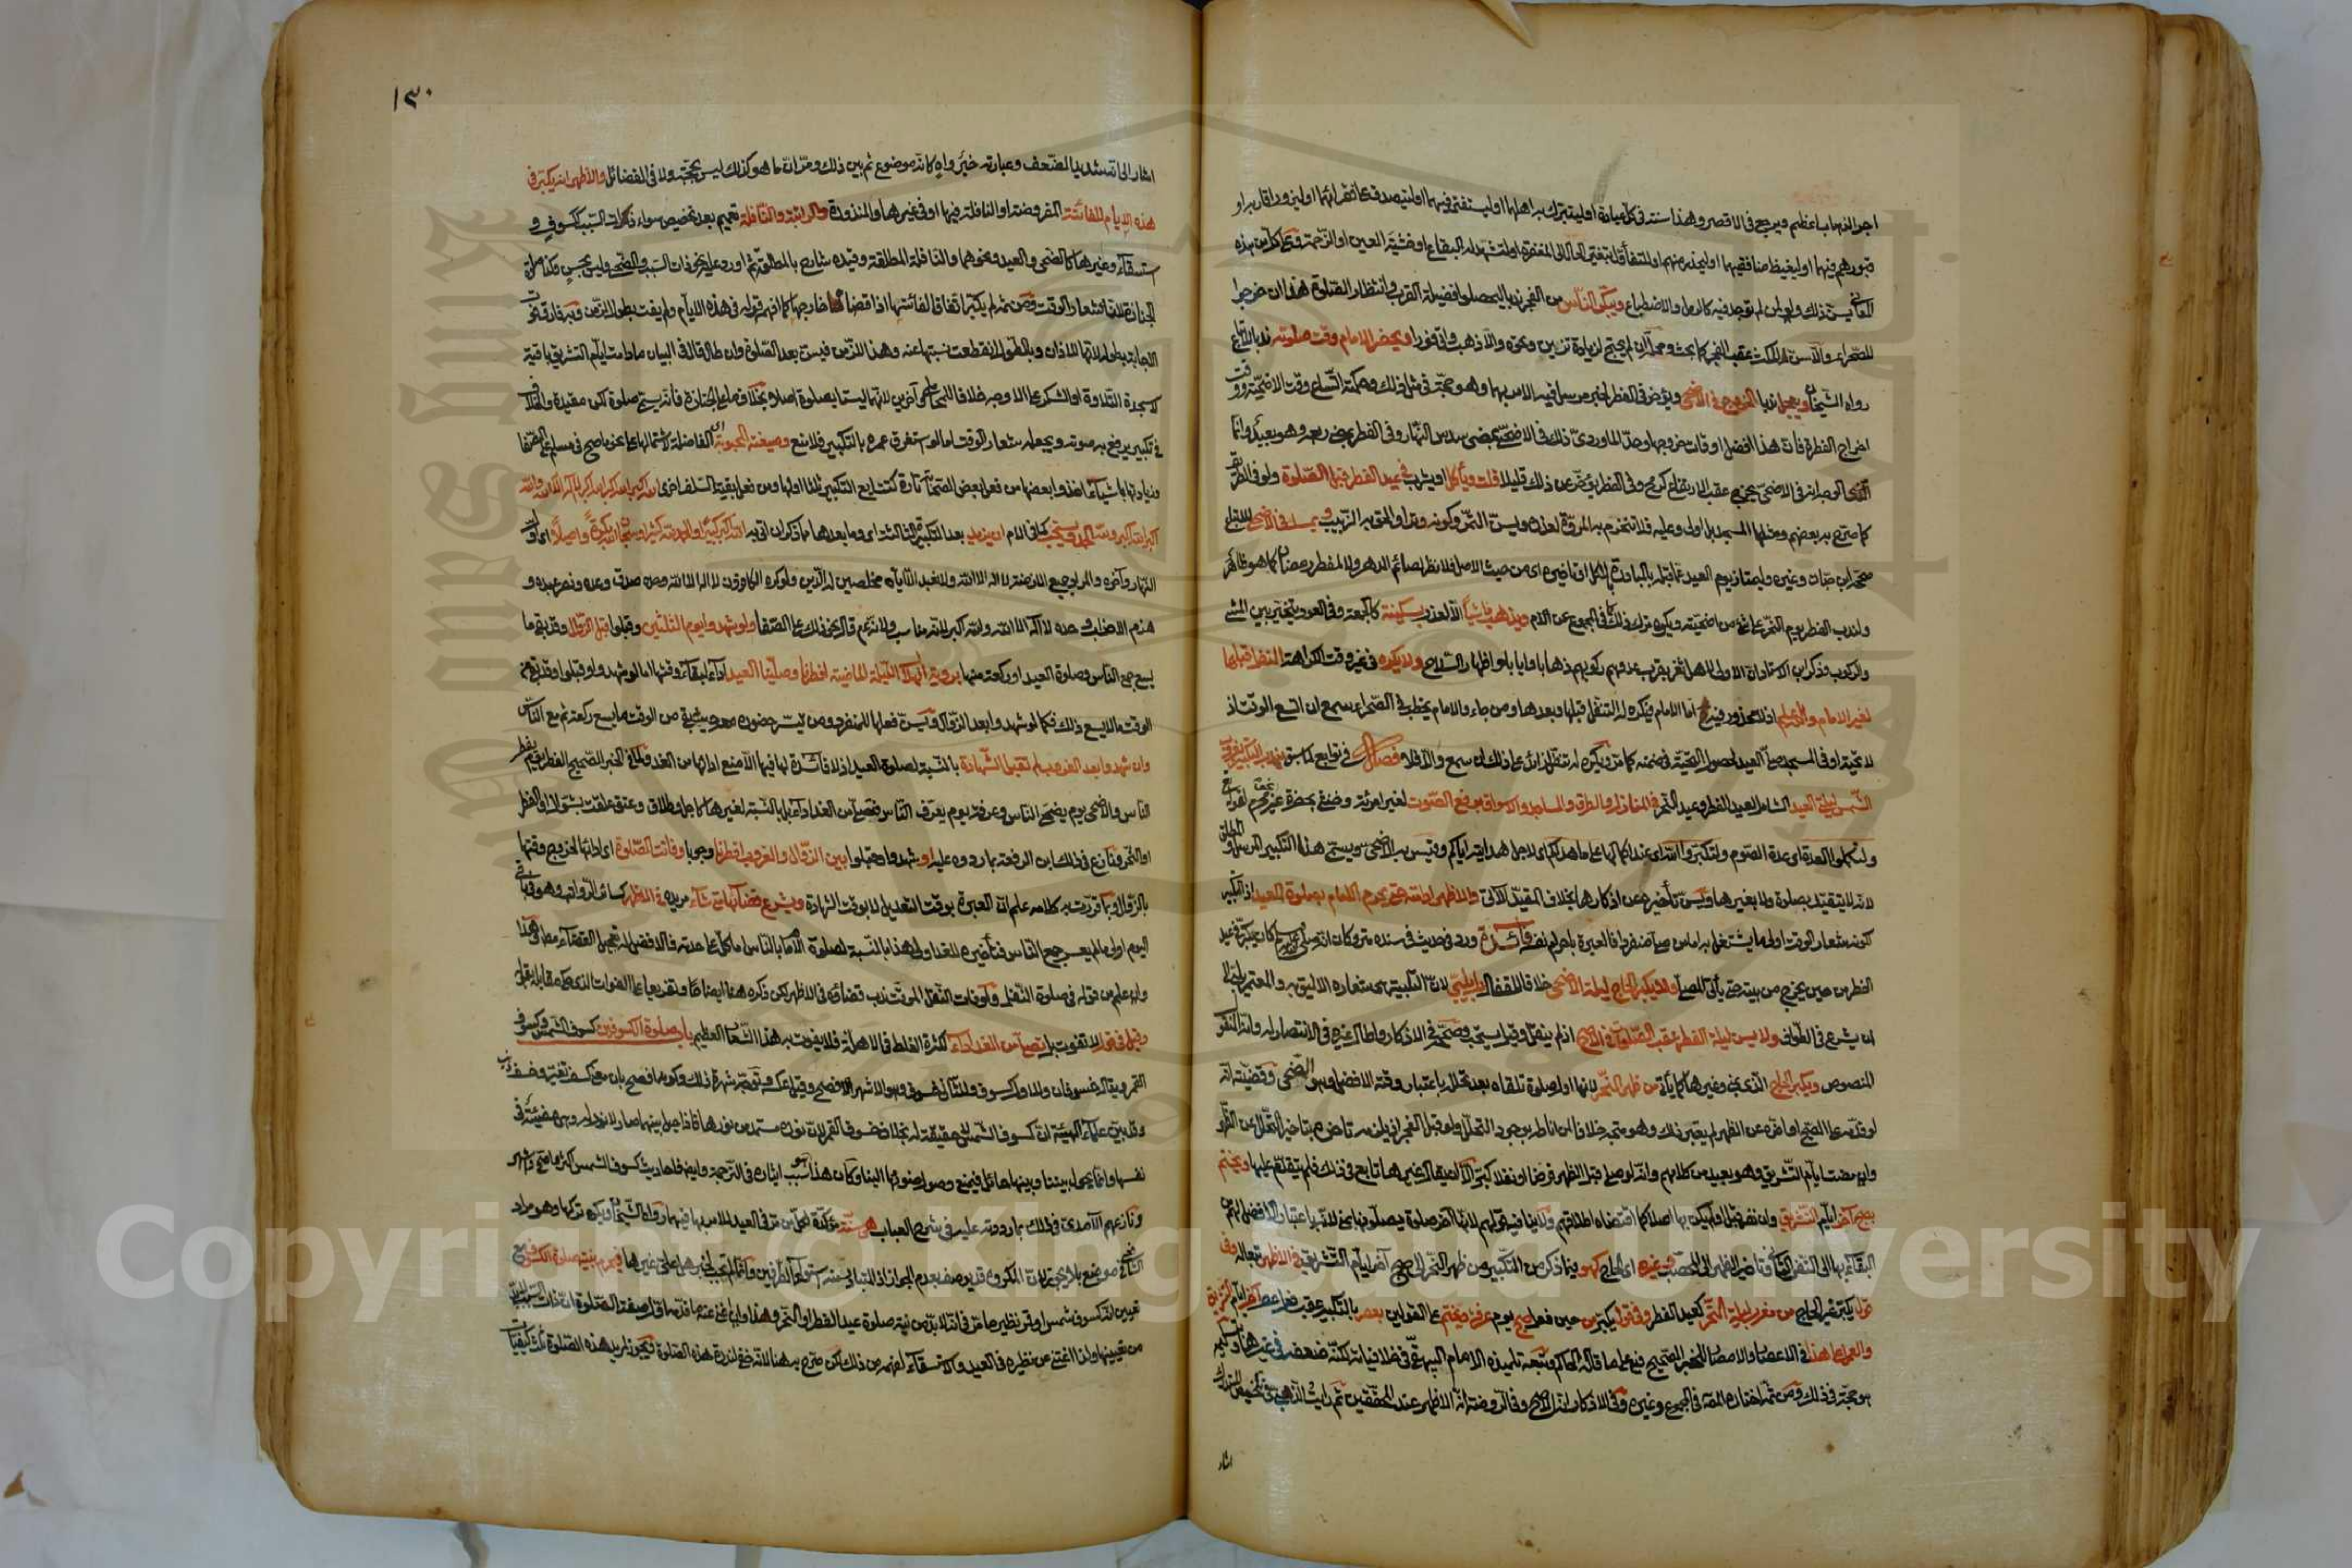 اجر الذهاب اعظم ويرجع في الاقصر وهذا سنة في كل عبادة او ليتبرك به اهلها او ليستفتى فيهما او ليتصدق على فقرائهما او ليزور اقاربه او
قبورهم فيهما او ليغيظ منافقيهما او ليحذر منهم او للتفاؤل بتغير الحال الى المغفرة او لتشهد له البقاع او خشية العين او الزحمة وعلى كل من هذه
المعاني يسن ذلك ولو لمن لم توجد فيه كالرمل والاضطباع ويبكر الناس من الفجر ندبا ليحصلوا فضيلة القرب وانتظار الصلوة هذا ان خرجوا
للصحراء والا سن المكث عقب الفجر كما بحث ومحله ان لم يحتج لزيادة تزيين ونحوه والا ذهب واتى فورا ويحضر الامام وقت صلوته ندبا للاتباع
رواه الشيخان ويعجل ندبا الخروج في الاضحى ويؤخر في الفطر لخبر مرسل فيه الامر بهما وهو حجة في مثل ذلك وحكمته اتساع وقت الاضحية ووقت
اخراج الفطرة فان هذا افضل اوقات خروجها وحد الماوردي ذلك في الاضحى بمضي سدس النهار وفي الفطر بمضي ربعه وهو بعيد وانما
الذي الوجه انه في الاضحى يخرج عقب الارتفاع كرمح وفي الفطر يؤخر عن ذلك قليلا قلت ويأكل او يشرب في عيد الفطر قبل الصلوة ولو في الطريق
كما صرح به بعضهم ومثلها المسجد بل اولى وعليه فلا تنخرم به المروة لعذره ويسن التمر وكونه وترا والحق به الزبيب ويمسك في الاضحى للاتباع
صححه ابن حبان وغيره وليمتاز يوم العيد عما قبله بالمبادرة بالاكل او تاخيره اي من حيث الاصل فلا نظر لصائم الدهر ولا لمفطر رمضان كما هو ظاهر
ولندب الفطر يوم النحر على شئ من اضحيته ويكره ترك ذلك كما في المجموع عن الام ويذهب ماشيا الا لعذر بسكينة كالجمعة وفي العود يتخير بين المشي
والركوب وذكر ابن الاستاد ان الاولى لاهل ثغر بقرب عدوهم ركوبهم ذهابا وايابا لاظهار السلاح ولا يكره في غير وقت الكراهة النفل قبلها
لغير الامام والله اعلم اذ لا محذور فيه اما الامام فيكره له التنفل قبلها وبعدها ومن جاء والامام يخطب في الصحراء سمع ان اتسع الوقت اذ
لا تحية او في المسجد صلى العيد لحصول التحية في ضمنه كما مر ويكره له تنفل زائد على ذلك ان سمع والا فلا فصل في توابع لما سبق يندب التكبير بغروب
الشمس ليلتي العيد الشامل لعيد الفطر وعيد النحر في المنازل والطرق والمساجد والاسواق برفع الصوت لغير امرئة وخنثى بحضرة غير محرم
ولتكملوا العدة اي عدة الصوم ولتكبروا الله اي عند اكمالها على ما هداكم اي لاجل هدايته اياكم وقيس به الاضحى ويسمى هذا التكبير المرسل والمطلق
لانه لا يتقيد بصلوة ولا بغيرها ويسن تأخيره عن اذكارها بخلاف المقيد الآتي والاظهر ادامته حتى يحرم الامام بصلوة العيد اذ التكبير
لكونه شعار الوقت اولى ما يشتغل به اما من صلى منفردا فالعبرة باحرام نفسه فائدة ورد في حديث في سنده متروكان انه صلى الله عليه وسلم كان يكبر في عيد
الفطر من حين يخرج من بيته حتى يأتي المصلى ولا يكبر الحاج ليلة الاضحى خلافا للقفال بل يلبي لان التلبية هي شعاره الاليق به والمعتمر يلبي الى
ان يشرع في الطواف ولا يسن ليلة الفطر عقب الصلوات في الاصح اذ لم ينقل وقيل يستحب وصححه في الاذكار واطال غيره في الانتصار له وانه المنقول
المنصوص ويكبر الحاج الذي بمنى وغيرها كما يأتي من ظهر النحر لانها اول صلوة تلقاه بعد تحلله باعتبار وقته الافضل وهو الضحى وقضيته انه
لو قدمه على الصبح او اخره عن الظهر لم يعتبر ذلك وهو متجه خلافا لمن اناطه بوجود التحلل ولو قبل الفجر اذ يلزمه تاخره بتاخير التحلل عن الظهر
وان مضت ايام التشريق وهو بعيد من كلامهم وانه لو صلى قبل الظهر فرضا او نفلا كبر الا ان يقال غيرها تابع في ذلك فلم يتقدم عليها ويختم
بصبح آخر ايام التشريق وان نفر قبل او لم يكن بها اصلا كما اقتضاه اطلاقهم ولا ينافيه قولهم لانها آخر صلوة يصلونها بمنى لانه باعتبار الافضل لهم من
البقاء بها الى النفر الثاني وتاخير الظهر الى المحصب وغيره اي الحاج كهو فيما ذكر من التكبير من ظهر النحر الى صبح آخر ايام التشريق في الاظهر تبعا له وفي
قول يكبر غير الحاج من مغرب ليلة النحر كعيد الفطر وفي قول يكبر من حين فعل صبح يوم عرفة ويختم على القولين بعصر بالتكبير عقب فعل عصر آخر ايام التشريق
والعمل على هذا في الاعصار والامصار للخبر الصحيح فيه على ما قاله الحاكم وتبعه تلميذه الامام البيهقي في خلافياته لكنه ضعفه في غيرها
هو حجة في ذلك ومن ثم اختاره المصنف في المجموع وغيره وفي الاذكار انه الاصح وفي الروضة انه الاظهر عند المحققين ثم رأيت الذهبي في تلخيص المستدرك
اشار
١٣٠
اشار الى انه شديد الضعف وعبارته خبر واه كانه موضوع ثم بين ذلك ومر ان ما هو كذلك ليس بحجة ولا في الفضائل والاظهر انه يكبر في
هذه الايام للفائتة المفروضة او النافلة فيها او في غيرها والمنذورة والراتبة والنافلة تعميم بعد تخصيص سواء ذات السبب ككسوف و
استسقاء وغيرها كالضحى والعيد ونحوهما والنافلة المطلقة
الجنازة لانه شعار الوقت ومن ثم لم يكبر اتفاقا لفائتتها اذا قضاها خارجها كما افهمه قوله في هذه الايام ولم يفت بطول الزمن
الاجابة بطوله لانها للاذان وبالطول انقطعت نسبتها عنه وهذا للزمن فيسن بعد الصلوة وان طال قال في البيان ما دامت ايام التشريق باقية
لا سجدة التلاوة او الشكر على الاوجه خلافا للمحاملي وآخرين لانهما ليستا بصلوة اصلا بخلاف صلوة الجنازة فانه يسمى صلوة لكن مقيدة
في تكبير يرفع به صوته ويجعله شعار الوقت اما لو استغرق عمره بالتكبير فلا منع وصيغته المحبوبة اي الفاضلة لاشتمالها على نحو ما صح في مسلم على الصفا
وزيادتها باشياء اخذ بعضها من فعل بعض الصحابة تارة كتتابع التكبير ثلاثا اولها ومن فعل بقية السلف اخرى الله اكبر الله اكبر الله اكبر لا اله الا الله والله
اكبر الله اكبر ولله الحمد ويستحب كما في الام ان يزيد بعد التكبيرة الثالثة اي وما بعدها مما ذكر ان اتى به الله اكبر كبيرا والحمد لله كثيرا وسبحان الله بكرة واصيلا اي اول
النهار وآخره والمراد جميع الازمنة لا اله الا الله ولا نعبد الا اياه مخلصين له الدين ولو كره الكافرون لا اله الا الله وحده صدق وعده ونصر عبده و
هزم الاحزاب وحده لا اله الا الله والله اكبر لانه مناسب ولانه صلى الله عليه وسلم قال نحو ذلك على الصفا ولو شهدوا يوم الثلثين وقبلوا قبل الزوال وقد بقي ما
يسع جمع الناس وصلوة العيد او ركعة منها برؤية الهلال الليلة الماضية افطرنا وصلينا العيد اداء لبقاء وقتها اما لو شهدوا او قبلوا وقد بقي من
الوقت ما لا يسع ذلك فكما لو شهدوا بعد الزوال ويسن فعلها للمنفرد ومن تيسر حضوره معه حيث بقي من الوقت ما يسع ركعة ثم مع الناس
وان شهدوا بعد الغروب لم تقبل الشهادة بالنسبة لصلوة العيد اذ لا فائدة لها فيها الا منع ادائها من الغد ولما في الخبر الصحيح الفطر يوم يفطر
الناس والاضحى يوم يضحي الناس وعرفة يوم يعرف الناس فتصلى من الغد اداء بل بالنسبة لغيرها كاجل وطلاق وعتق علقت بشوال او الفطر
او النحر ونازع في ذلك ابن الرفعة بما ردوه عليه او شهدوا وقبلوا بين الزوال والغروب افطرنا وجوبا وفاتت الصلوة اي اداؤها لخروج وقتها
بالزوال وبما قررت به كلامه علم ان العبرة بوقت التعديل لا بوقت الشهادة ويشرع قضاؤها متى شاء مريده في الاظهر كسائر الرواتب وهو في باقي
اليوم اولى ما لم يعسر جمع الناس فتأخيره للغد اولى هذا بالنسبة لصلوة الامام بالناس اما كل على حدته فالافضل له تعجيل القضاء مطلقا وهذا
وان علم من قوله في صلوة النفل ولو فات النفل الموقت ندب قضاؤه في الاظهر لكن ذكره هنا ايضاحا وتفريعا على الفوات الذي حكى مقابله بقوله
وقيل في قول لا تفوت بل تصلى من الغد اداء لكثرة الغلط في الاهلة فلا يفوت به هذا الشعار العظيم باب صلوة الكسوفين كسوف الشمس وكسوف
القمر ويقال خسوفان وللاول كسوف وللثاني خسوف وهو الاشهر الافصح وقيل عكسه
وقد بين علماء الهيئة ان كسوف الشمس لا حقيقة له بخلاف خسوف القمر لان نوره مستمد من نورها فاذا حيل بينهما صار لا نور له وهي مضيئة في
نفسها وانما يحول بيننا وبينها حائل فيمنع وصول ضوئها الينا وكان هذا هو سبب ايثاره في الترجمة وايضا فاحاديث كسوف الشمس اكثر واصح واشهر
ونازعهم الآمدي في ذلك بما رددته عليه في شرح العباب هي سنة مؤكدة لكل من مر في العيد للامر بها فيهما رواه الشيخان ويكره تركها وهو مراد
الشافعي في موضع بلا يجوز لان المكروه قد يوصف بعدم الجواز
تعيين انه كسوف شمس او قمر نظير ما مر في انه لا بد من نية صلوة عيد الفطر او النحر وهذا وان اغنى عنه ما قدمه اول صفة الصلوة ان ذات السبب لا بد
من تعيينها ولذا اغتنى عن نظيره في العيد والاستسقاء لفهمه من ذلك لكن صرح به هنا لانه خفي لندرة هذه الصلوة ويجوز لمريد هذه الصلوة ثلاث كيفيات
Copyright © King Saud University